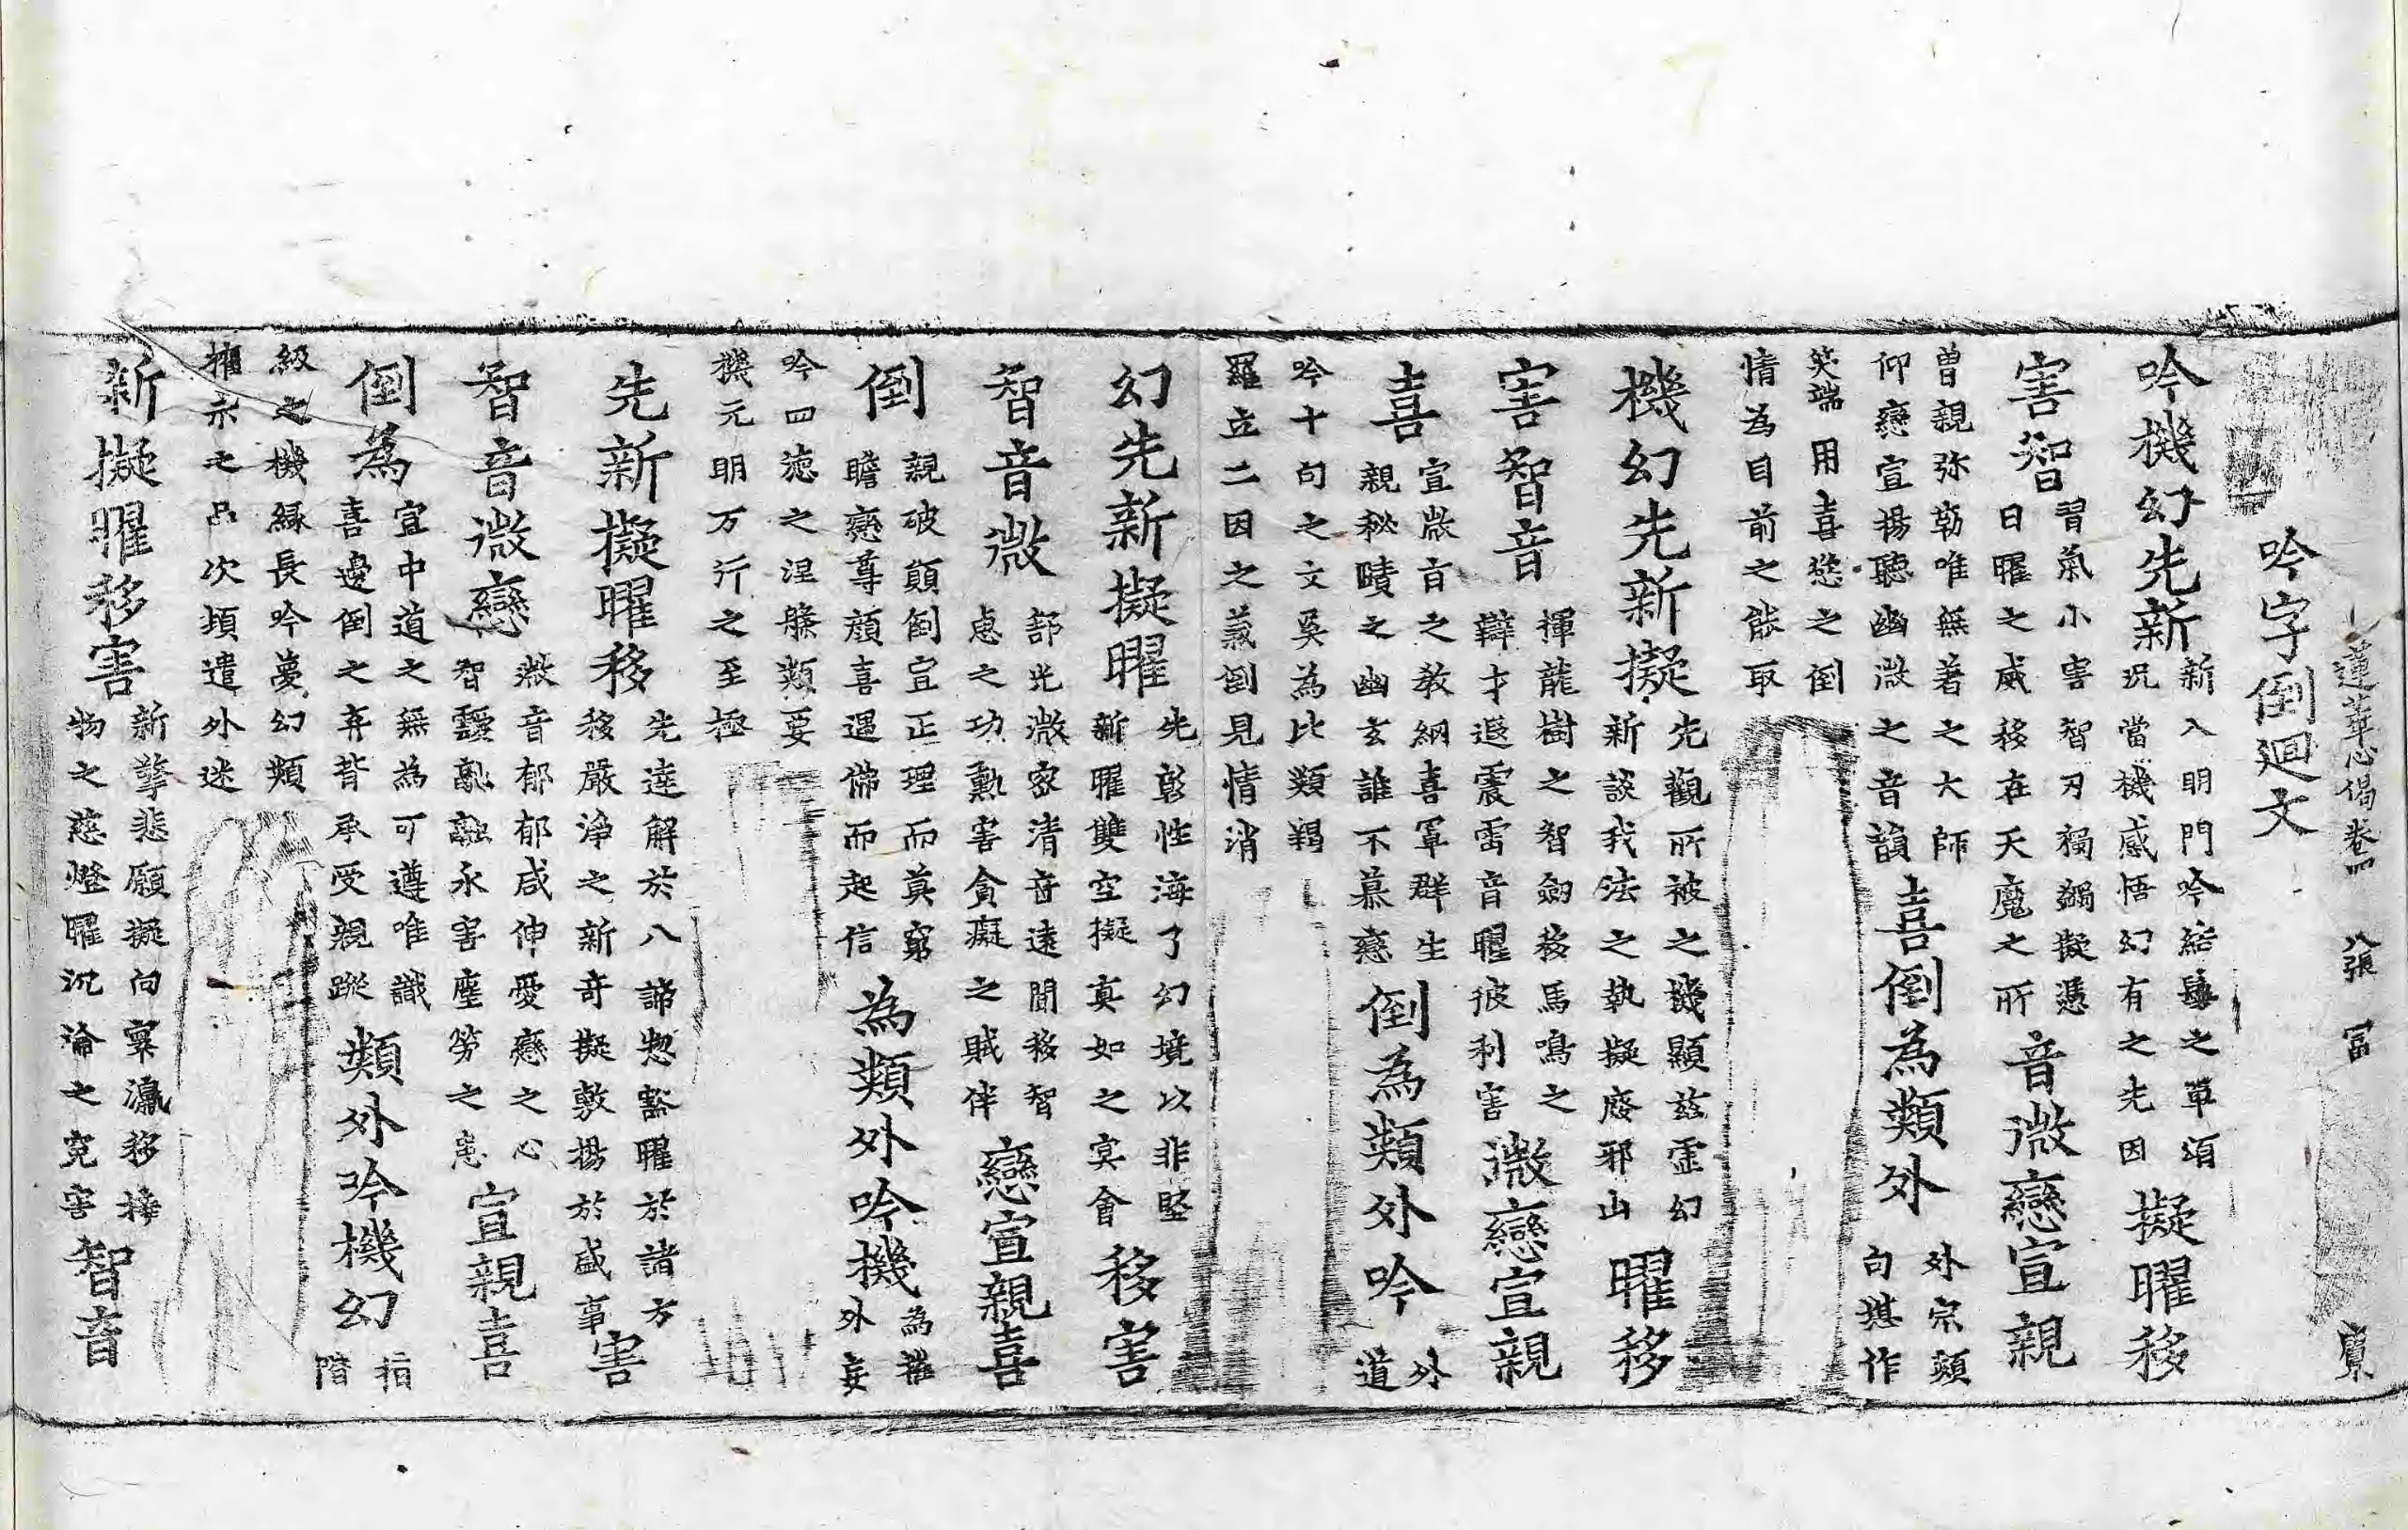 蓮華心偈卷四 八張 冨
吟字倒廻文
吟機幻先新
新入明門吟結髮之草須
況當機感悟幻有之先因
擬曜移
害智
習氣小害智刃擬憑
日曜之威移在天魔之所
音微戀宣親
曾親弥勒唯無著之大師
仰戀宣揚聽幽微之音韻
喜倒為類外
外宗類
向堪作
笑端用喜慈之倒
情為目前之能取
機幻先新擬
先觀所被之機顯茲霊幻
新談我法之執擬廢邪山
曜移
害智音
揮龍樹之智劒移馬鳴之
辯才遐震雷音曜彼利害
微戀宣親
喜
宣微言之教網喜軍群生
親秘賾之幽玄誰不慕戀
倒為類外吟
外
道
吟十句之文奚為比類羯
羅立二因之義倒見情消
幻先新擬曜
先彰性海了幻境以非堅
新曜雙空擬真如之冥會
移害
智音微
部光微密清音遠聞移智
惠之功勲害貪癡之賊伴
戀宣親喜
倒
親破顛倒宣正理而莫窮
瞻戀尊顔喜遇佛而起信
為類外吟機
為摧
外妄
吟四德之涅槃類要
機元明万行之至極
先新擬曜移
先達解於八諦惣豁曜於諸方
移嚴淨之新奇擬敷揚於盛事
害
智音微戀
微音郁郁咸伸愛戀之心
智靉融融永害塵勞之患
宣親喜
倒為
宣中道之無為可遵唯識
喜邊倒之弃背承受親蹤
類外吟機幻
指
階
級之機緣長吟夢幻類
權示之品次頃遣外迷
新擬曜移害
新擎悲願擬向寰瀛移接
物之慈燈曜沉淪之究害
智音